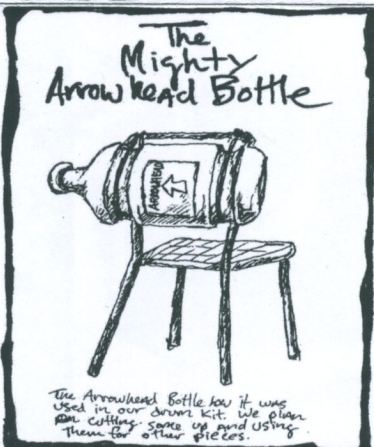 The
Mighty
Arrowhead Bottle
ARROWHEAD
The Arrowhead Bottle how it was
used in our drum kit. We plan
on cutting some up and using
them for other pieces.